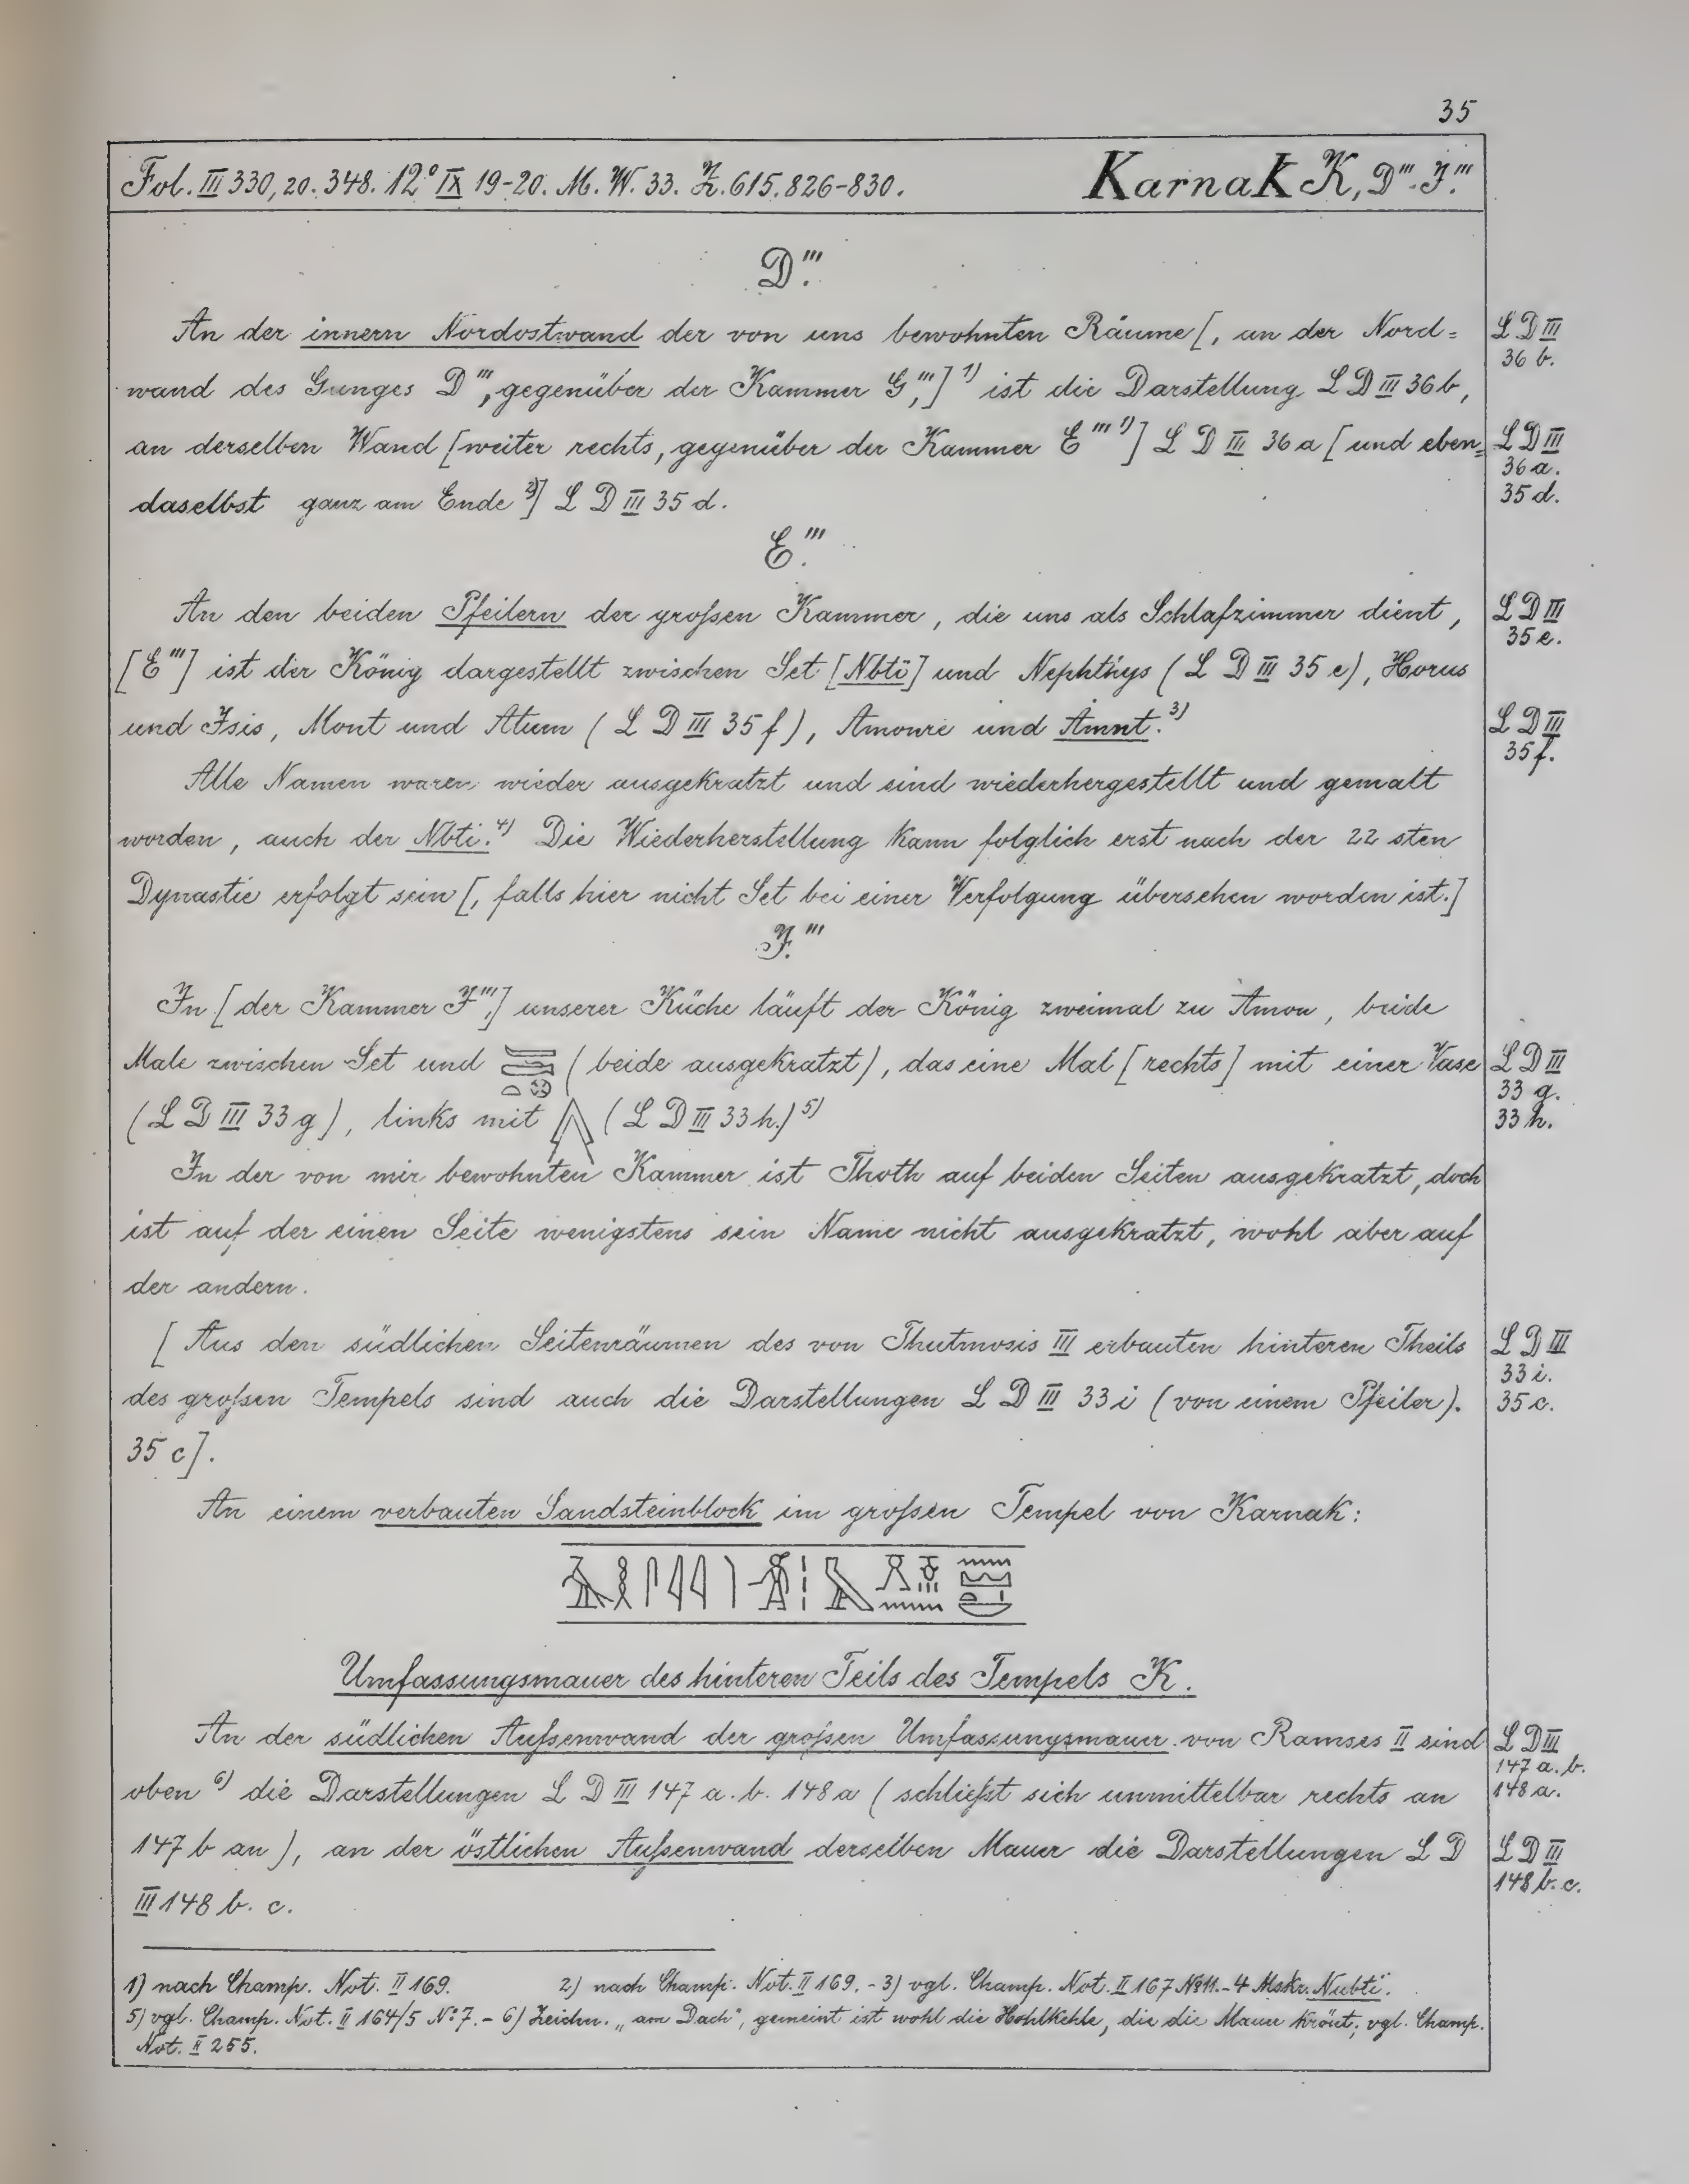 35
Fol. III 330, 20. 348. 12° IX 19-20. M. W. 33. Z. 615. 826-830. Karnak K, D‴. F‴.
D‴.
An der innern Nordostwand der von uns bewohnten Räume [, an der Nord= L D III
36 b.
wand des Ganges D‴, gegenüber der Kammer G‴,] 1) ist die Darstellung L D III 36 b,
an derselben Wand [weiter rechts, gegenüber der Kammer E‴ 1)] L D III 36 a [und eben= L D III
36 a.
daselbst ganz am Ende 2)] L D III 35 d. 35 d.
E‴.
An den beiden Pfeilern der großen Kammer, die uns als Schlafzimmer dient, L D III
35 e.
[E‴] ist der König dargestellt zwischen Set [Nbti] und Nephthys (L D III 35 e), Horus
und Isis, Mont und Atum (L D III 35 f), Amonre und Amnt. 3) L D III
35 f.
Alle Namen waren wieder ausgekratzt und sind wiederhergestellt und gemalt
worden, auch der Nbti. 4) Die Wiederherstellung kann folglich erst nach der 22 sten
Dynastie erfolgt sein [, falls hier nicht Set bei einer Verfolgung übersehen worden ist.]
F.‴
In [der Kammer F‴,] unserer Küche läuft der König zweimal zu Amon, beide
Male zwischen Set und (beide ausgekratzt), das eine Mal [rechts] mit einer Vase L D III
33 g.
(L D III 33 g), links mit (L D III 33 h.) 5) 33 h.
In der von mir bewohnten Kammer ist Thoth auf beiden Seiten ausgekratzt, doch
ist auf der einen Seite wenigstens sein Name nicht ausgekratzt, wohl aber auf
der andern.
[Aus den südlichen Seitenräumen des von Thutmosis III erbauten hinteren Theils L D III
33 i.
des großen Tempels sind auch die Darstellungen L D III 33 i (von einem Pfeiler). 35 c.
35 c].
An einem verbauten Sandsteinblock im großen Tempel von Karnak:
Umfassungsmauer des hinteren Teils des Tempels K.
An der südlichen Außenwand der großen Umfassungsmauer von Ramses II sind L D III
147 a. b.
oben 6) die Darstellungen L D III 147 a. b. 148 a (schließt sich unmittelbar rechts an 148 a.
147 b an), an der östlichen Außenwand derselben Mauer die Darstellungen L D L D III
148 b. c.
III 148 b. c.
1) nach Champ. Not. II 169. 2) nach Champ. Not. II 169. - 3) vgl. Champ. Not. II 167 No 11. - 4 Mskr. Nubti.
5) vgl. Champ. Not. II 164/5 No 7. - 6) Zeichn. „am Dach", gemeint ist wohl die Hohlkehle, die die Mauer krönt; vgl. Champ.
Not. II 255.